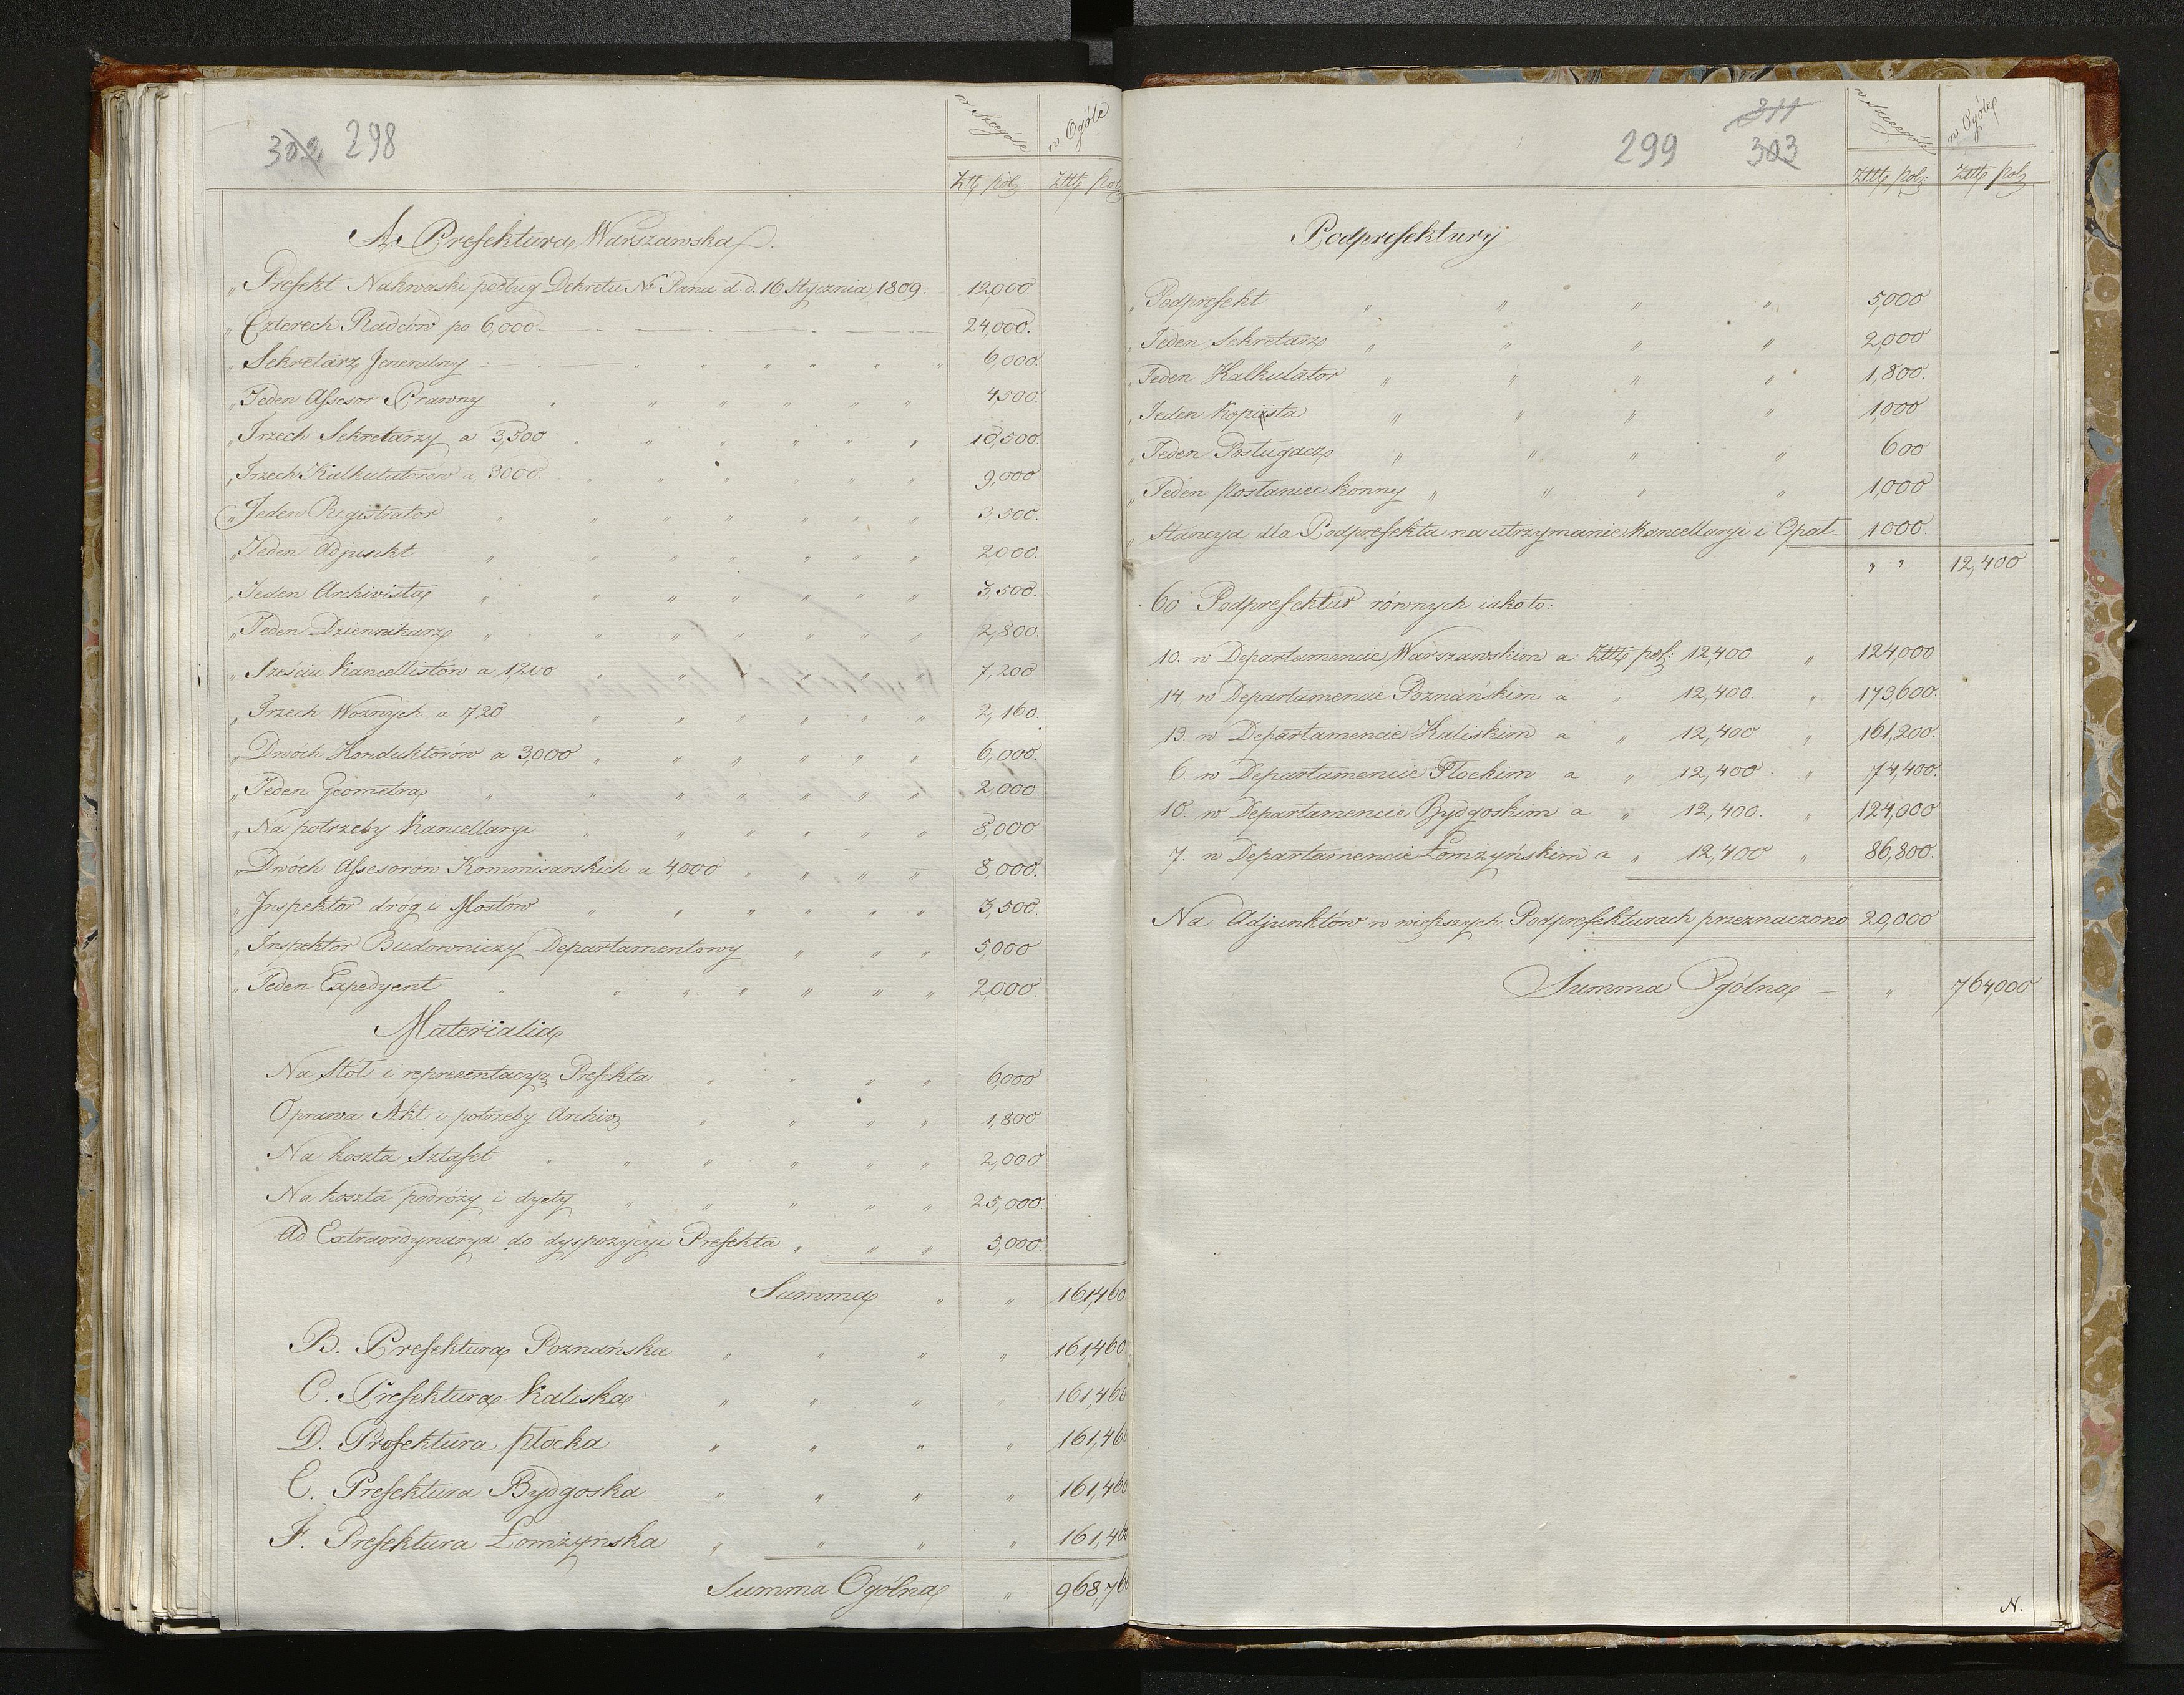 302 298
w Szczególe
w Ogóle
Złł pol:
Złłt pol
A. Prefektura Warszawska.
„ Prefekt Nakwaski podług Dekretu N. Pana d. d. 16 Stycznia 1809. 12,000.
„ Czterech Radców po 6,000 24,000.
„ Sekretarz Jeneralny 6,000.
„ Jeden Assesor Prawny 4500.
„ Trzech Sekretarzy a 3,500 10,500.
„ Trzech Kalkulatorów a 3000. 9,000
„ Jeden Registrator 3,500.
„ Jeden Adjunkt 2000.
„ Jeden Archivista 3,500.
„ Jeden Dziennikarz 2,800.
„ Sześciu Kancellistów a 1,200 7,200
„ Trzech Woznych a 720 2,160.
„ Dwoch Konduktorów a 3,000 6,000.
„ Jeden Geometra 2,000.
„ Na potrzeby Kancellaryi 8,000
„ Dwóch Assesorow Kommisarskich a 4,000 8,000.
„ Jnspektor dróg i Mostów 3,500.
„ Inspektor Budowniczy Departamentowy 5,000
„ Jeden Expedyent 2,000.
Materialia
Na Stół i reprezentacyą Prefekta 6,000
Oprawa Akt i potrzeby Archiv 1,800
Na koszta Sztafet 2,000
Na koszta podróży i dyety 25,000.
Ad Extraordynarya do dyspozycyi Prefekta 5,000.
Summa „ „ 161,460.
B. Prefektura Poznańska „ „ „ „ 161,460.
C. Prefektura Kaliska „ „ „ „ 161,460
D. Prefektura płocka „ „ „ „ 161,46
E. Prefektura Bydgoska „ „ „ „ 161,460
F. Prefektura Łomżyńska „ „ „ „ 161,46
Summa Ogólna „ 968,76
311
299 303
w Szczególe
w Ogóle
Złłt pol:
Złłt pol
Podprefektury
„ Podprefekt „ „ „ „ 5,000
„ Jeden Sekretarz „ „ „ „ 2,000
„ Jeden Kalkulator „ „ „ „ 1,800.
„ Jeden Kopiista „ „ „ „ 1,000
„ Jeden Posługacz „ „ „ „ 600
„ Jeden posłaniec konny „ „ „ „ 1,000
„ Stancya dla Podprefekta na utrzymanie Kancellaryi i Opał 1000.
„ „ 12,400
60 Podprefektur równych iako to:
10. w Departamencie Warszawskim a Złłt pol: 12,400 „ 124,000
14. w Departamencie Poznańskim a „ 12,400. „ 173,600.
13. w Departamencie Kaliskim a „ 12,400 „ 161,200.
6. w Departamencie Płockim a „ 12,400. „ 74,400.
10. w Departamencie Bydgoskim a „ 12,400. „ 124,000
7. w Departamencie Łomżyńskim a „ 12,400 „ 86,800.
Na Adjunktów w większych Podprefekturach przeznaczono 20,000
Summa Ogólna „ 764,000
N.